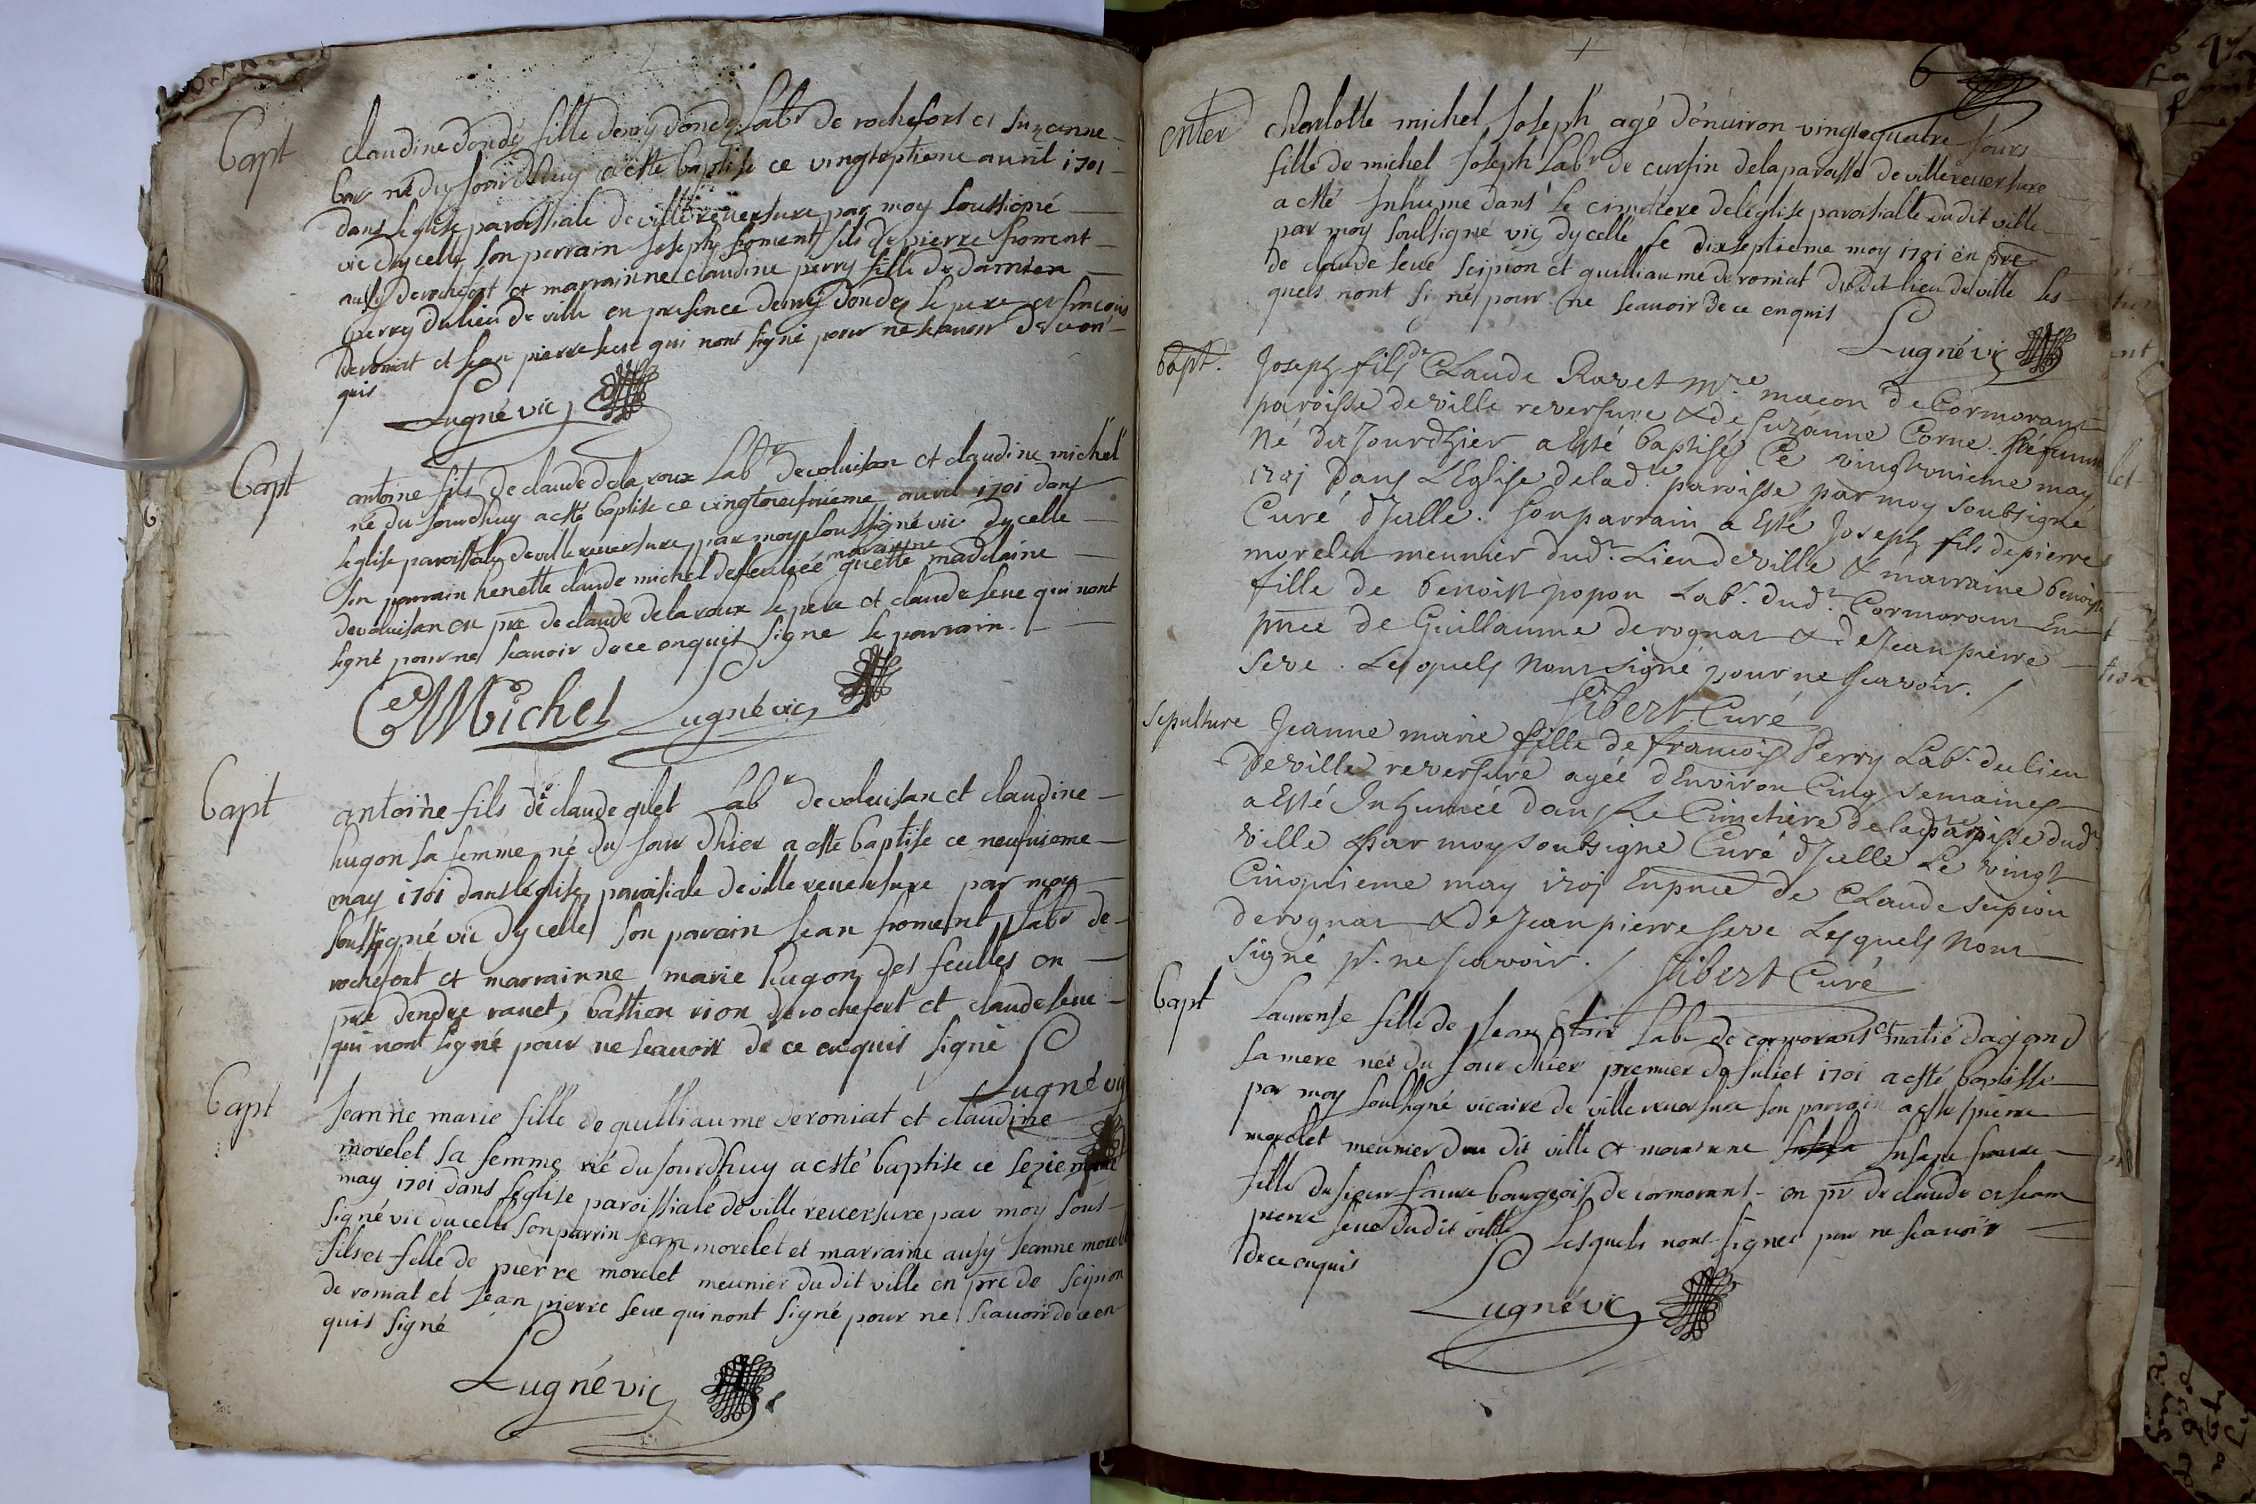 Bapt
claudine dondé fille denry dondey Labr de rochefort et Suzanne
bar né du jourdhuy a esté baptisé ce vingtseptieme avril 1701
dans leglise paroissiale de villereuersure par moy soussigné
vic dycelle son parrain Joseph froment fils de pierre froment
aussy de rochefort et marrainne claudine perry fille de damien
perry du lieu de ville en presence denry dondey le pere et francois
deroniat et Jean pierre seue qui nont signé pour ne scauoir de ce en
quis
Lugné vic
Bapt
antoine fils de claude delaroux Labr de voluisan et claudine michel
né du jourdhuy a esté baptisé ce vingtneufuieme auril 1701 dans
leglise paroissiale de villereuersure par moy soussigné vic dycelle
son parrain henette claude michel de feulliée maraine guette madelaine
devoluisan en pre de claude delaroux le pere et claude seue qui nont
signé pour ne scauoir de ce enquis signe le parrain
CMichel Lugné vic
Bapt
antoine fils de claude gilet Labr de voluisan et claudine
hugon sa femme né du jour dhier a esté baptisé ce neufuieme
may 1701 dans leglise paroisiale de ville reuersure par moy
soussigné vic dycelle son parain Jean froment Labr de
rochefort et marrainne marie hugon des feulles en
pre dendre rauet, bastien rion de rochefort et claude seue
qui nont signé pour ne scauoir de ce enquis signé
Lugné vic
Bapt
Jeanne marie fille de guilliaume deroniat et claudine
morelet sa femme né du jourdhuy a esté baptisé ce sezieme
may 1701 dans leglise paroissiale de ville reuersure par moy sous
signé vic dycelle son parrin Jean morelet et marraine aussy Jeanne morelet
fils et fille de pierre morelet meunier du dit ville en pre de scipion
de roniat et Jean pierre seue qui nont signé pour ne scauoir de ce en
quis signé
Lugné vic
6
enter
charlotte michel Joseph agé denuiron vingtequatre jours
fille de michel Joseph Labr de cursin de la paroisse de villereuersure
a esté Inhumé dans le cimetiere de leglise paroisialle du dit ville
par moy soussigné vic dycelle le dixseptieme may 1701 en pre
de claude seue scipion et guilliaume deroniat du dit lieu de ville les
quels nont signé pour ne scauoir de ce enquis
Lugné vic
bapt.
Joseph fils de Claude Ravet mre macon de Cormorant
paroisse de ville reversure & de Suzanne Corne sa femme
Né du Jourdhier a Esté baptisé Ce vingtunieme may
1701 Dans LEglise de lad. te paroisse par moy soubsigné
Curé dJcelle. Son parrain a Esté Joseph fils de pierre
morelet meunier dud.t Lieu de ville & marraine benoiste
fille de benoist popon Lab.r dud.t Cormorant En
pnce de Guillaume derognat & de Jean pierre
Seve. Lesquels Nont signé pour ne scavoir.
Sibert Curé
Sepulture
Jeanne marie fille de francois Perry Lab.r du lieu
De ville reversure agée dEnviron Cinq semaines
a Esté Inhumée dans Le Cimetiere de lad. paroisse dud.t
ville par moy soubsigné Curé dJcelle Le vingt
Cinquieme may 1701 En pnce de Claude scipion
derognat & de Jean pierre Seve Lesquels Nont
signé p.r ne scavoir.
Sibert Curé
Bapt
Laurense fille de Jean Labr de cormorans et
sa mere née du jour dhier premier de Juliet 1701 a esté baptisée
par moy soussigné vicaire de ville reuersure son parrain a esté pierre
morelet meunier du dit ville et marainne
fille du sieur faure bourgeois de cormorant en pr de claude et Jean
pierre seue du dit ville Lesquels nont signés pour ne scauoir
de ce enquis
Lugné vic